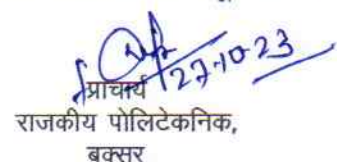 27-10-23
प्राचार्य
राजकीय पोलिटेकनिक,
बक्सर